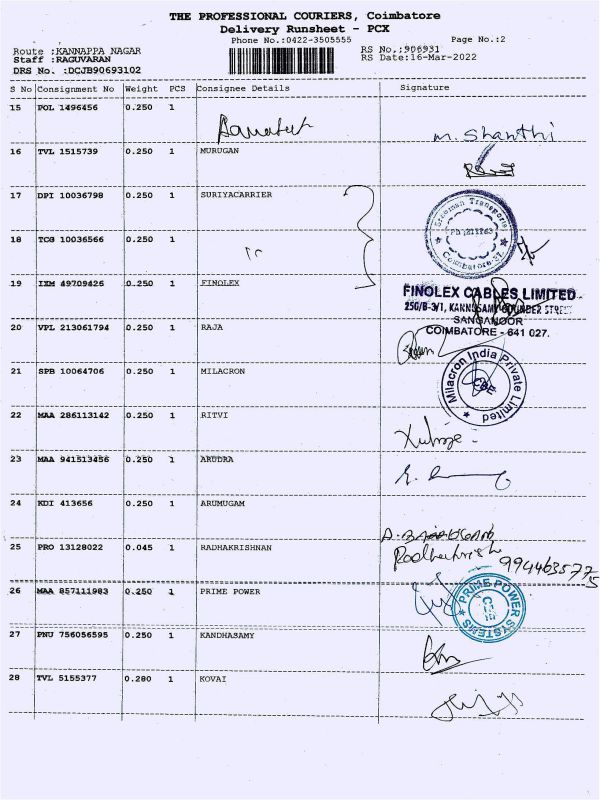 THE PROFESSIONAL COURIERS, Coimbatore
Delivery Runsheet - PCX
Phone No.:0422-3505555 Page No.:2
Route :KANNAPPA NAGAR RS No.:906931
Staff :RAGUVARAN RS Date:16-Mar-2022
DRS No. :DCJB90693102
S No Consignment No Weight PCS Consignee Details Signature
15 POL 1496456 0.250 1
M. Shanthi
16 TVL 1515739 0.250 1 MURUGAN
17 DPI 10036798 0.250 1 SURIYACARRIER
Transports
Coimbatore-37.
18 TCG 10036566 0.250 1
19 IXM 49709426 0.250 1 FINOLEX
FINOLEX CABLES LIMITED
250/B-3/1, KANNUSAMY GOUNDER STREET
SANGANOOR
COIMBATORE - 641 027.
20 VPL 213061794 0.250 1 RAJA
21 SPB 10064706 0.250 1 MILACRON
Milacron India Private Limited
CBE
22 MAA 286113142 0.250 1 RITVI
23 MAA 941513456 0.250 1 ARUDRA
24 KDI 413656 0.250 1 ARUMUGAM
25 PRO 13128022 0.045 1 RADHAKRISHNAN
Radhakrish
9944635775
26 MAA 857111983 0.250 1 PRIME POWER
PRIME POWER SYSTEMS
27 PNU 756056595 0.250 1 KANDHASAMY
28 TVL 5155377 0.280 1 KOVAI